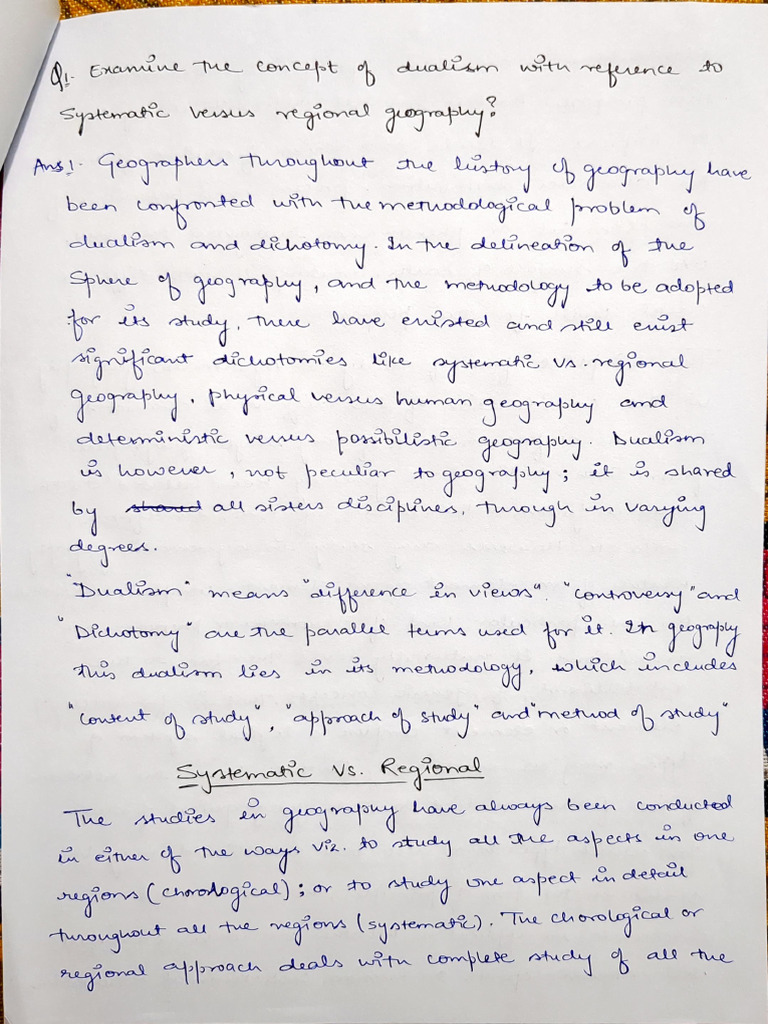 Q1. Examine the concept of dualism with reference to
systematic versus regional geography?
Ans 1. Geographers throughout the history of geography have
been confronted with the methodological problem of
dualism and dichotomy. In the delineation of the
sphere of geography, and the methodology to be adopted
for its study, there have existed and still exist
significant dichotomies like systematic vs. regional
geography, physical versus human geography and
deterministic versus possibilistic geography. Dualism
is however, not peculiar to geography; it is shared
by shared all sisters disciplines, through in varying
degrees.
"Dualism" means "difference in views". "controversy" and
"Dichotomy" are the parallel terms used for it. In geography
this dualism lies in its methodology, which includes
"content of study", "approach of study" and "method of study"
Systematic vs. Regional
The studies in geography have always been conducted
in either of the ways viz. to study all the aspects in one
regions (chorological); or to study one aspect in detail
throughout all the regions (systematic). The chorological or
regional approach deals with complete study of all the